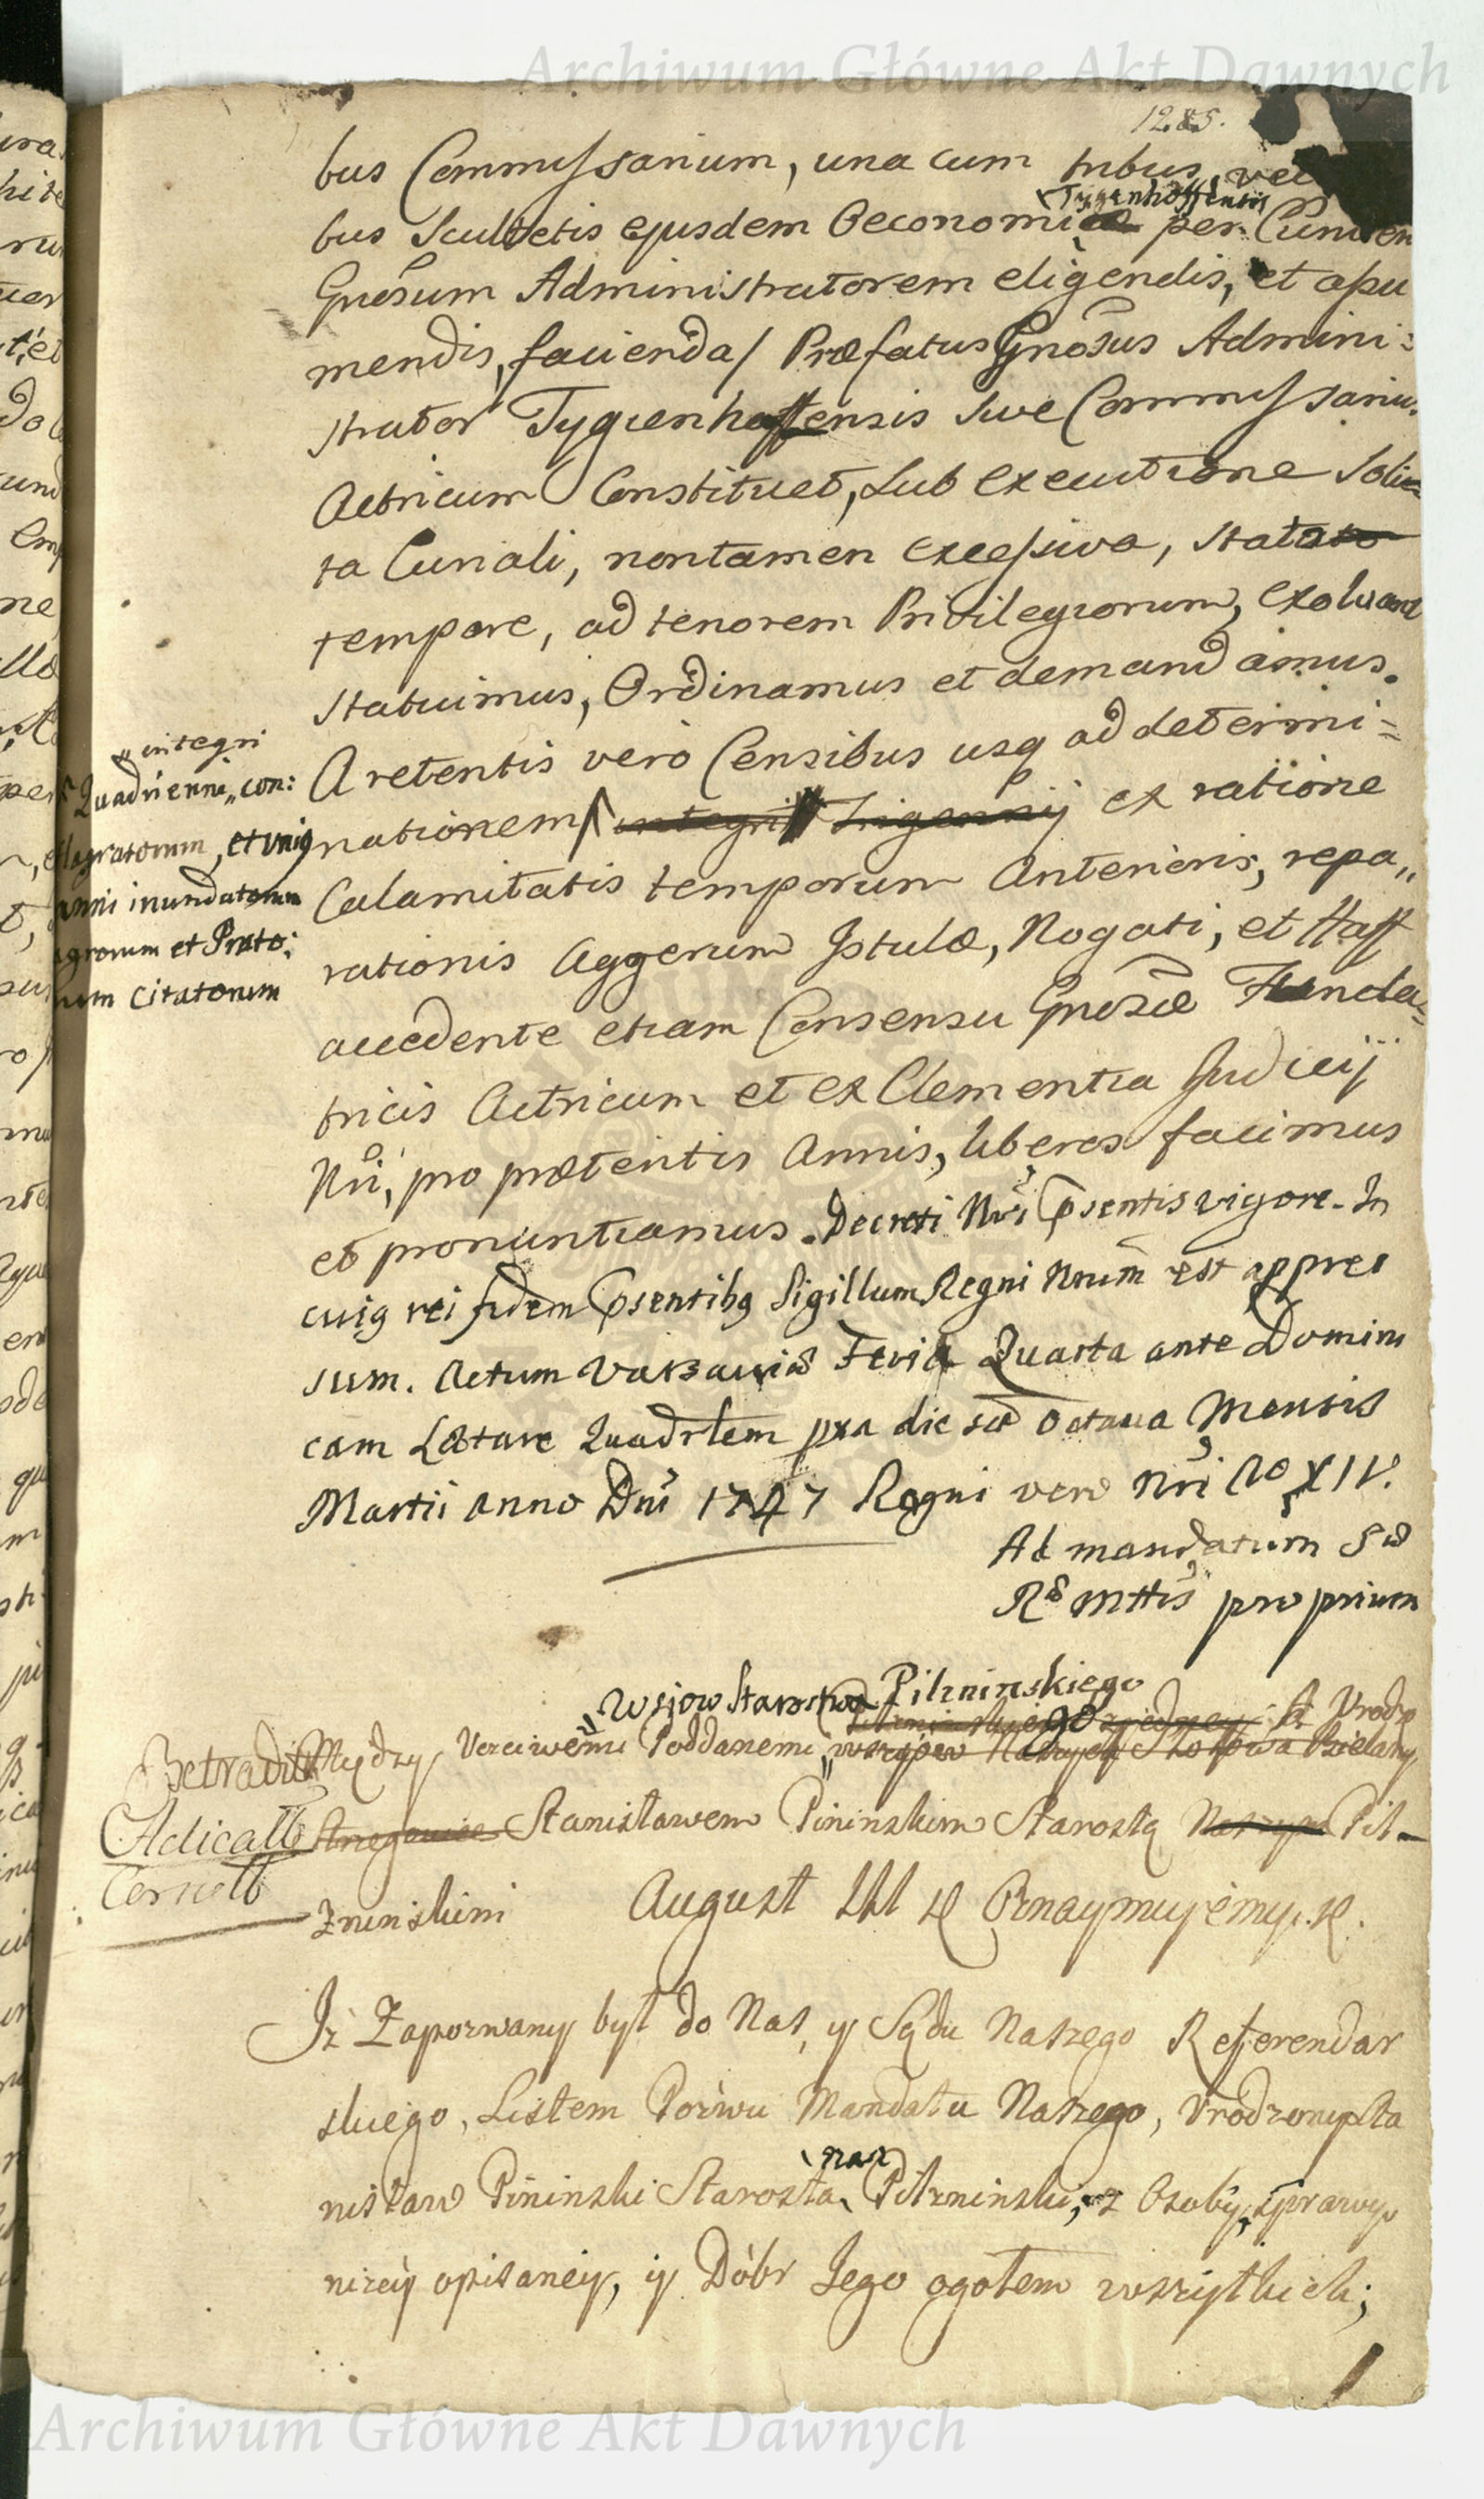 Archiwum Główne Akt Dawnych
1285.
bus Commissarium, una cum tribus, vel
Tygenhoffensis
bus Scultetis ejusdem Oeconomiae per
Gnosum Administratorem eligendis, et assu
mendis, facienda/ Præfatus Gnosus Admini:
strator Tygienhoffensis sive Commissarius
Actricum Constituet, sub executione Soli=
ta Curiali, non tamen excessiva, statuto
tempore, ad tenorem Privilegiorum, exolvant
statuimus, Ordinamus et demandamus.
A retentis vero Censibus usq ad determi=
nationem integri ex ratione
„ integri
Quadriennij „ con:
flagratorum, et unig
anni inundatorum
agrorum et Prato:
rum citatorum
Calamitatis temporum Anterioris, repa„
rationis Aggerum Istulæ, Nogati, et Haff
accedente etiam Consensu Gnosæ Funda=
tricis Actricum et ex Clementia Judicij
Nri, pro præteritis Annis, liberos facimus
et pronuntiamus. Decreti Nri psentis vigore. In
cuig rei fidem psentibg Sigillum Regni Nrum est appres
sum. Actum Varsaviæ Feria Quarta ante Domini
cam Lætare Quadrlem pxa die scil Octava Mensis
Martii anno Dni 1747 Regni vero Nri Ao XIV.
Ad mandatum S
R Mttis proprium
Wsiow Starostwa Pilzninskiego
Między Uczciwemi Poddanemi
Stanisławem Pininskim Starostą Naszym Pil-
znenskim August III Oznaymuiemy.
Iż Zapozwany był do Nas, y Sądu Naszego Referendar
skiego, Listem Pozwu Mandatu Naszego, Urodzony Sta
nisław Pininski Starosta nasz Pilzninski, z Osoby, sprawy
niżey opisaney, y Dóbr Jego ogołem wszytkich;
Archiwum Główne Akt Dawnych